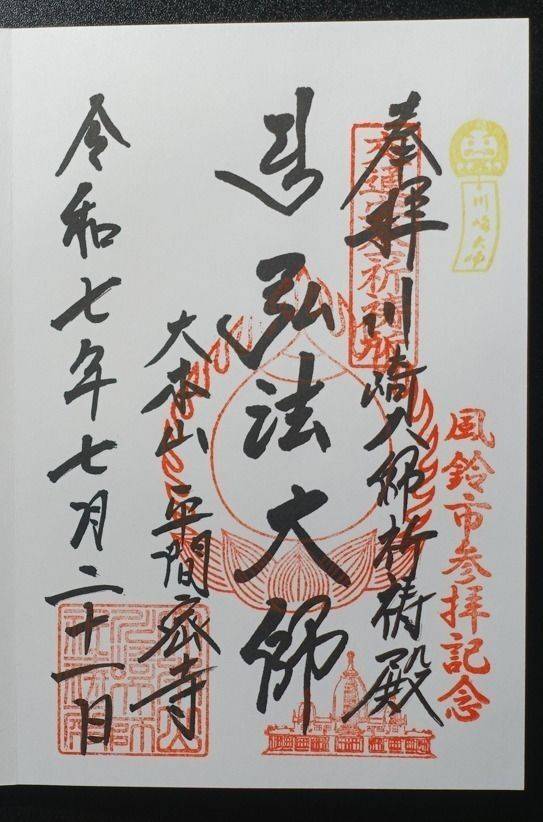 川崎大師
風鈴市参拝記念
交通安全祈祷所
奉拝 川崎大師祈祷殿
弘法大師
大本山 平間寺
令和七年七月二十一日